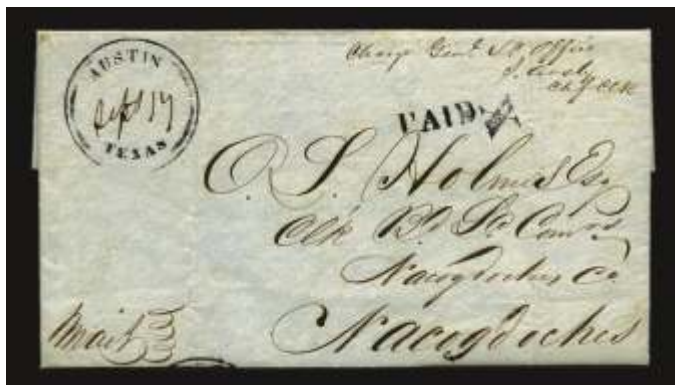 AUSTIN
Sept 17
TEXAS
Charge Genl. L. Office
Ch.f Clk
PAID
O. L. Holmes Esq
Clk Bd. Ld. Comrs
Nacogdoches Co
Nacogdoches
Mail